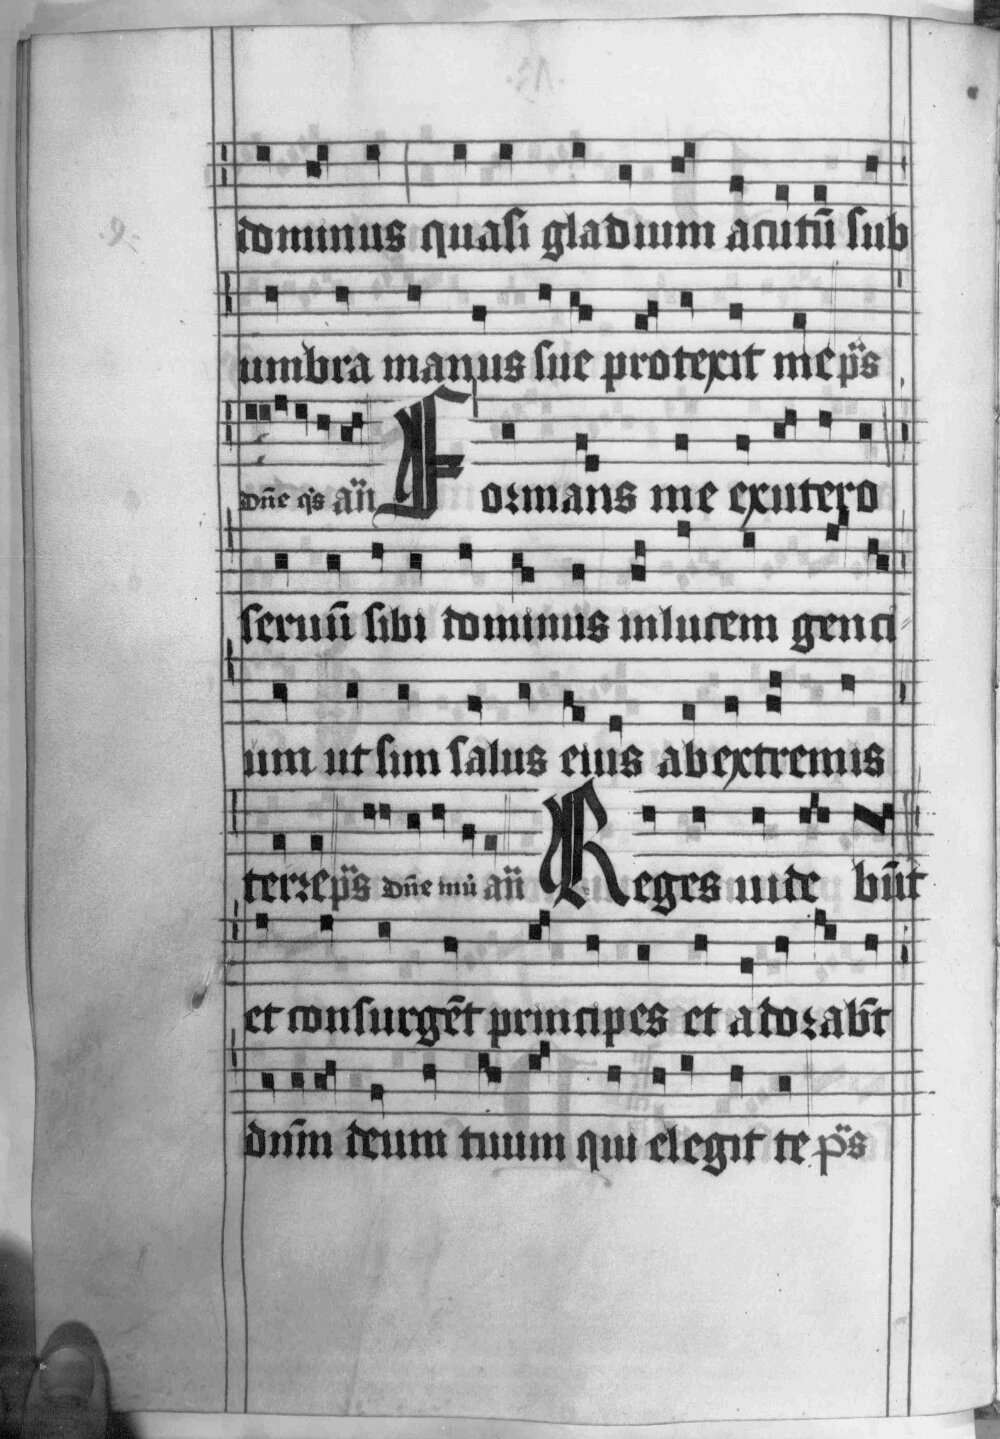 dominus quasi gladium acutū sub
umbra manus sue protexit me p̄s
Dn̄e q̇s an̄ Formans me exutero
seruū sibi dominus inlucem genci
um ut sim salus eius abextremis
terre p̄s Dn̄e mū an̄ Reges uide būt
et consurgēt principes et adorab̄t
dn̄m deum tuum qui elegit te p̄s